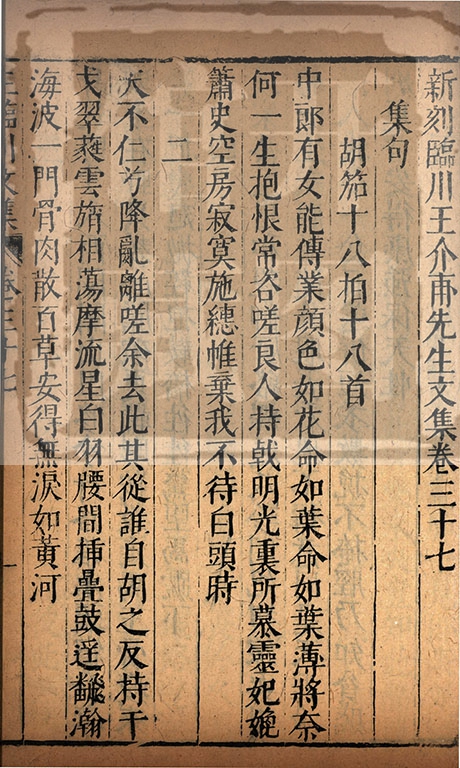 新刻臨川王介甫先生文集卷三十七
集句
胡笳十八拍十八首
中郎有女能傳業顔色如花命如葉命如葉薄將奈
何一生抱恨常咨嗟良人持戟明光裏所慕靈妃媲
簫史空房寂寞施繐帷棄我不待白頭時
二
天不仁兮降亂離嗟余去此其從誰自胡之反持干
戈翠蕤雲旓相蕩摩流星白羽腰間揷疊鼓遥飜瀚
海波一門骨肉散百草安得無淚如黃河
王臨川文集 卷三十七 一